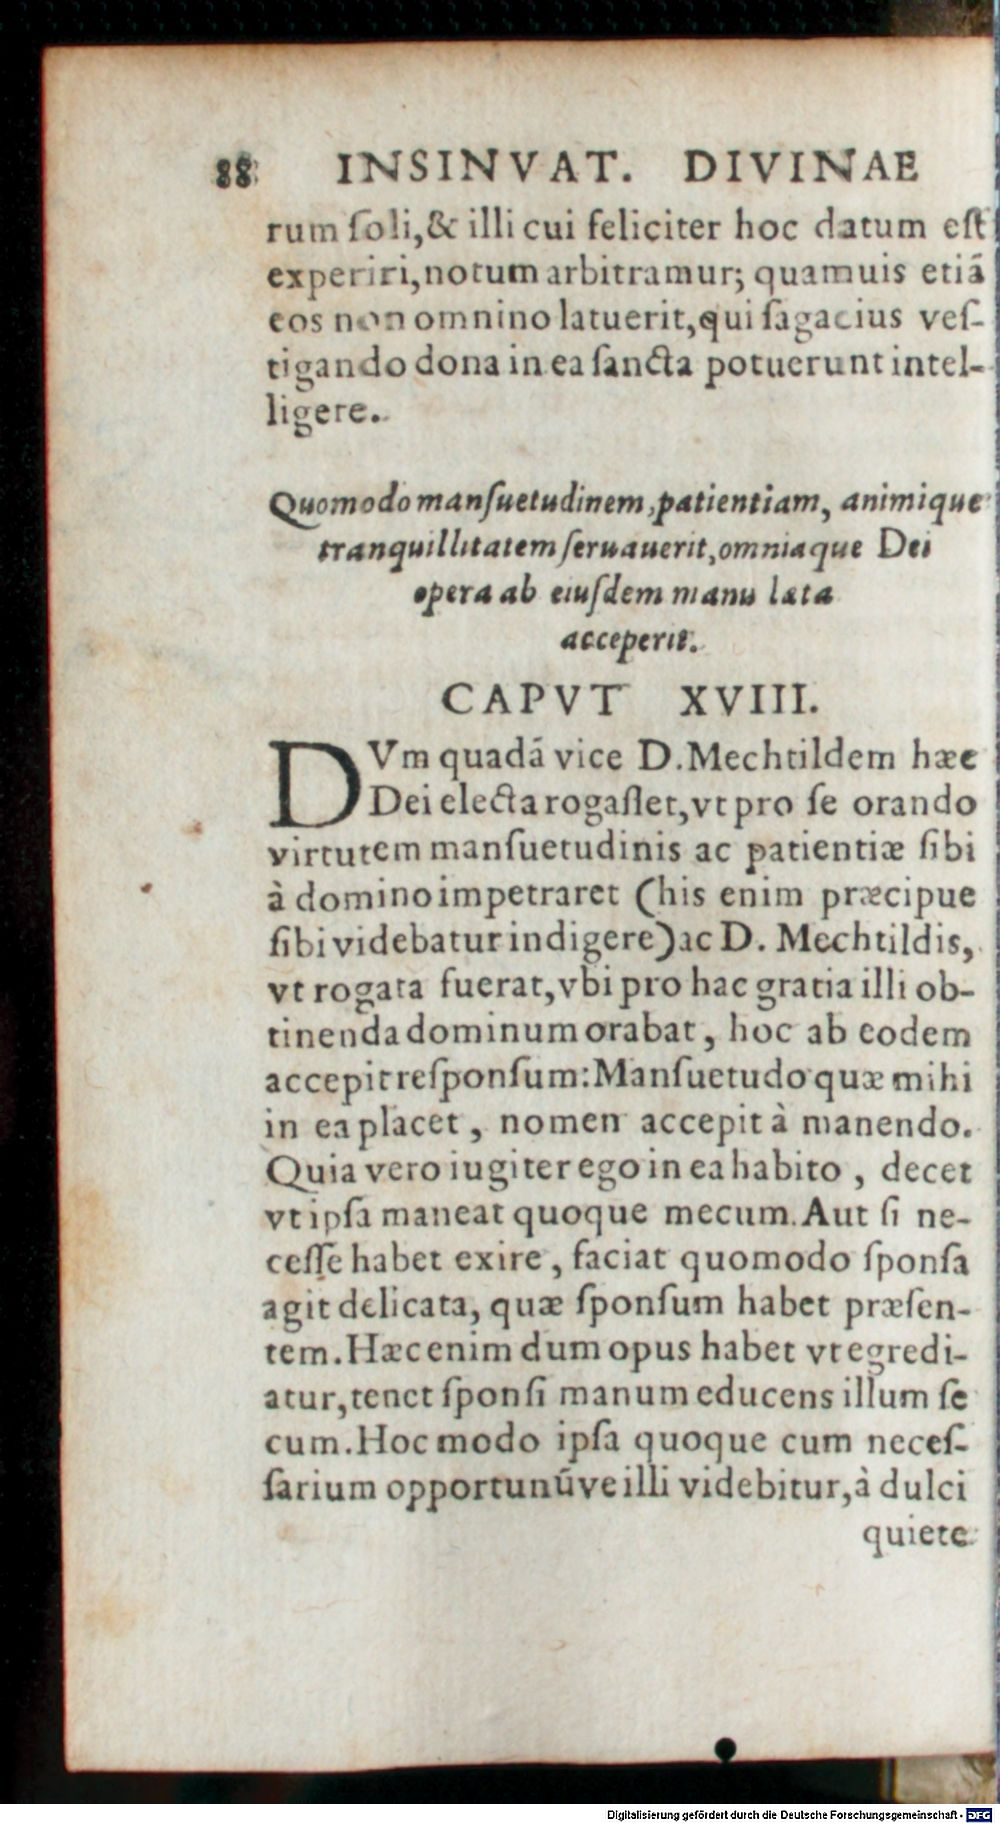 88 INSINVAT. DIVINAE
rum ſoli,& illi cui feliciter hoc datum eſt
experiri,notum arbitramur; quamuis etiā
eos non omnino latuerit,qui ſagacius veſ-
tigando dona in ea ſancta potuerunt intel-
ligere.
Quomodo manſuetudinem,patientiam, animique
tranquillitatem ſeruauerit,omniaque Dei
opera ab eiuſdem manu læta
acceperit.
CAPVT XVIII.
DVm quadā vice D.Mechtildem hæc
Dei electa rogaſſet,vt pro ſe orando
virtutem manſuetudinis ac patientiæ ſibi
à domino impetraret (his enim præcipue
ſibi videbatur indigere) ac D. Mechtildis,
vt rogata fuerat,vbi pro hac gratia illi ob-
tinenda dominum orabat, hoc ab eodem
accepit reſponſum: Manſuetudo quæ mihi
in ea placet, nomen accepit à manendo.
Quia vero iugiter ego in ea habito, decet
vt ipſa maneat quoque mecum. Aut ſi ne-
ceſſe habet exire, faciat quomodo ſponſa
agit delicata, quæ ſponſum habet præſen-
tem. Hæc enim dum opus habet vt egredi-
atur,tenet ſponſi manum educens illum ſe
cum. Hoc modo ipſa quoque cum neceſ-
ſarium opportunūve illi videbitur,à dulci
quiete
Digitalisierung gefördert durch die Deutsche Forschungsgemeinschaft - DFG